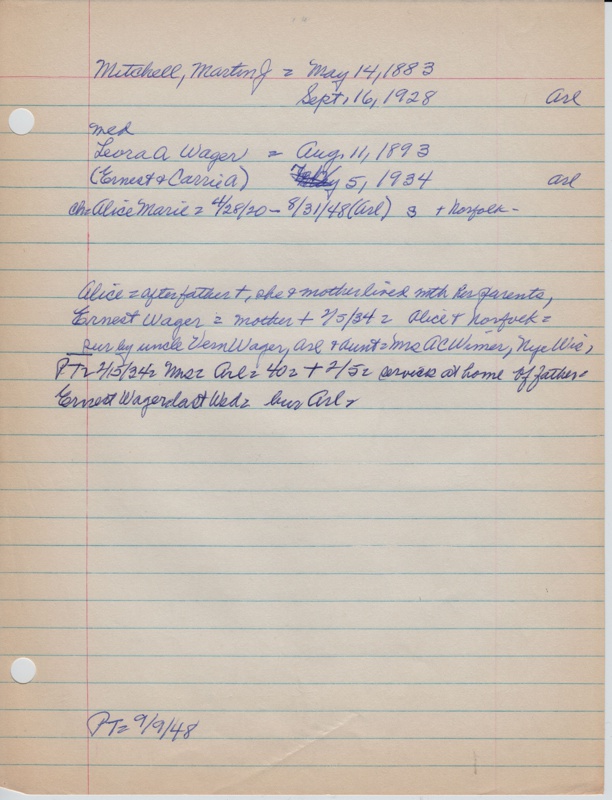 Mitchell, Martin J = May 14, 1883
Sept, 16, 1928 Arl
med
Leora A Wager = Aug. 11, 1893
(Ernest + Carrie A) Feb 5, 1934 arl
ch= Alice Marie = 4/28/20 - 8/31/48 (Arl) 3 + Norfolk -
Alice = after father +, she + mother lived with her parents,
Ernest Wager = mother + 2/5/34 = Alice + Norfolk =
sur by uncle Vern Wager, Arl + aunt = Mrs AC Wimer, Nye Wis,
PT= 2/15/34 = Mrs = Arl = 40 = + 2/5 = services at home of father =
Ernest Wager last Wed = bur Arl =
PT= 9/9/48